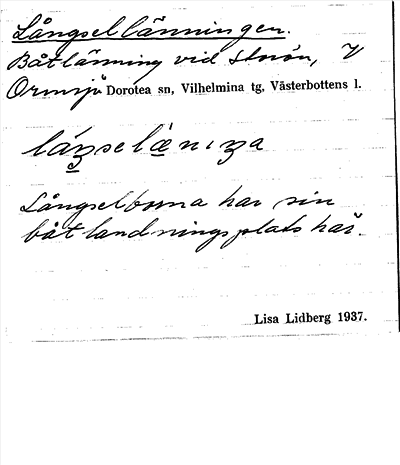 Långsellänningen.
Båtlänning vid Storön, V
Ormsjö Dorotea sn, Vilhelmina tg, Västerbottens l.
Långselborna har sin
båtlandningsplats här.
Lisa Lidberg 1937.